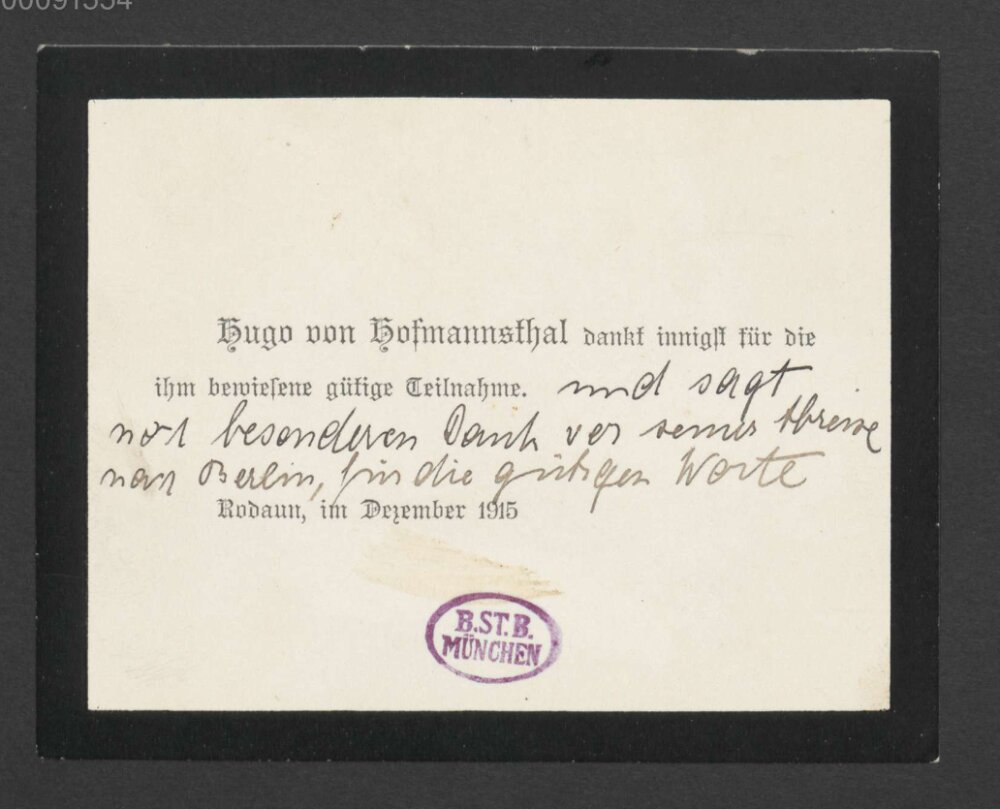 00091554
Hugo von Hofmannsthal dankt innigst für die
ihm bewiesene gütige Teilnahme. und sagt
noch besonderen Dank vor seiner Abreise
nach Berlin, für die gütigen Worte
Rodaun, im Dezember 1915
B.ST.B.
MÜNCHEN